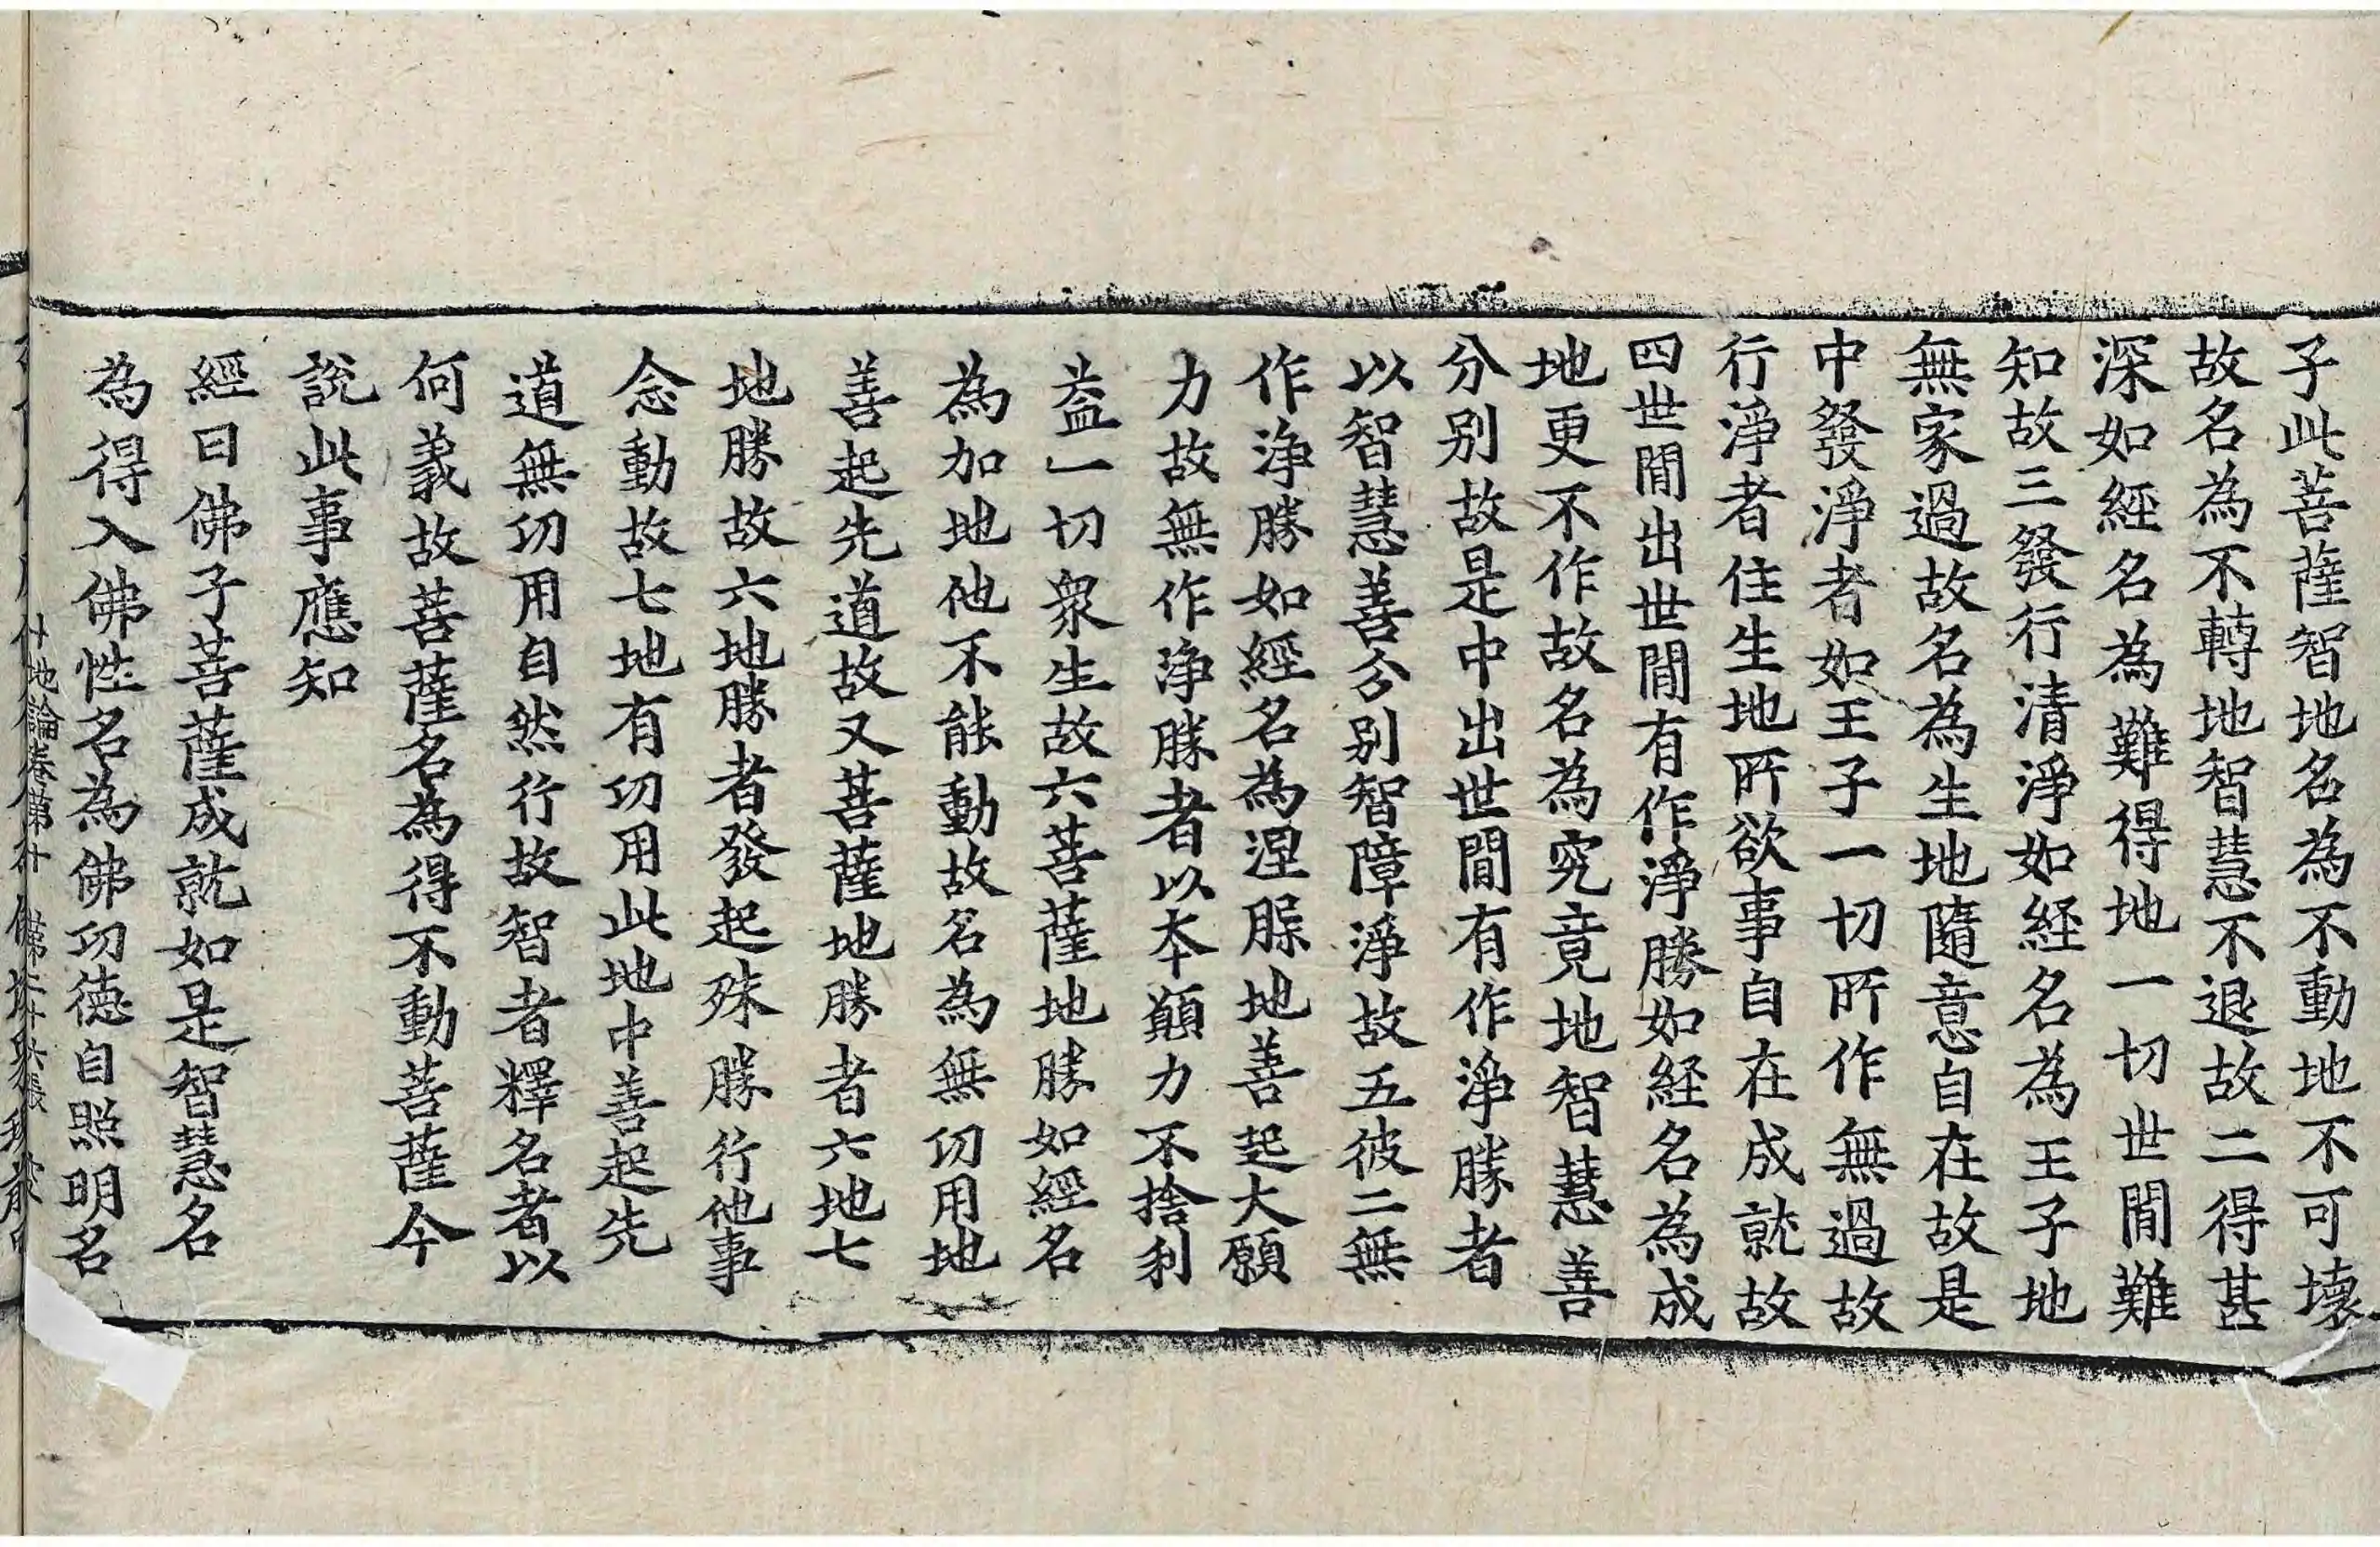 子此菩薩智地名為不動地不可壞
故名為不轉地智慧不退故二得甚
深如經名為難得地一切世間難
知故三發行清淨如經名為王子地
無家過故名為生地隨意自在故是
中發淨者如王子一切所作無過故
行淨者住生地所欲事自在成就故
四世間出世間有作淨勝如経名為成
地更不作故名為究竟地智慧善
分別故是中出世間有作淨勝者
以智慧善分別智障淨故五彼二無
作淨勝如經名為涅脲地善起大願
力故無作淨勝者以本願力不捨利
益一切衆生故六菩薩地勝如經名
為加地他不能動故名為無功用地
善起先道故又菩薩地勝者六地七
地勝故六地勝者發起殊勝行他事
念動故七地有功用此地中善起先
道無功用自然行故智者釋名者以
何義故菩薩名為得不動菩薩今
說此事應知
經曰佛子菩薩成就如是智慧名
為得入佛性名為佛功德自照明名
地論卷第十